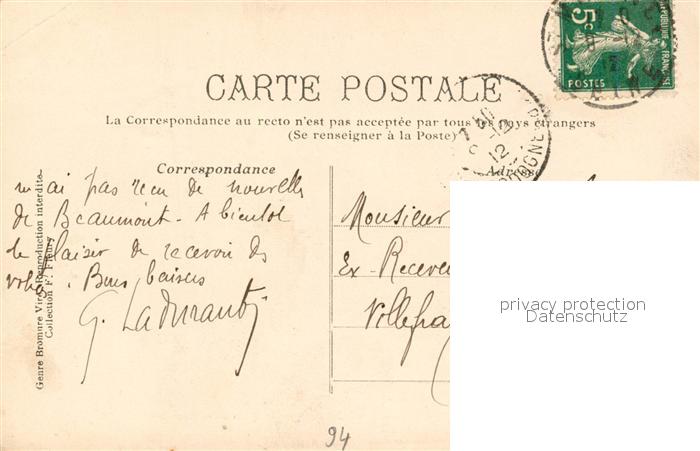 5c
REPUBLIQUE FRANÇAISE
POSTES
CARTE POSTALE
La Correspondance au recto n'est pas acceptée par tous les pays étrangers
(Se renseigner à la Poste)
7 30
12
12
DOGNE
Correspondance
Adresse
m'ai pas reçu de nouvelles
de Beaumont - A bientôt
le plaisir de recevoir des
votres. Bons baisers
G.
Monsieur
Ex-Receveu
Villefra
Genre Bromure Viré Reproduction interdite
Collection F. Fleury
privacy protection
Datenschutz
94